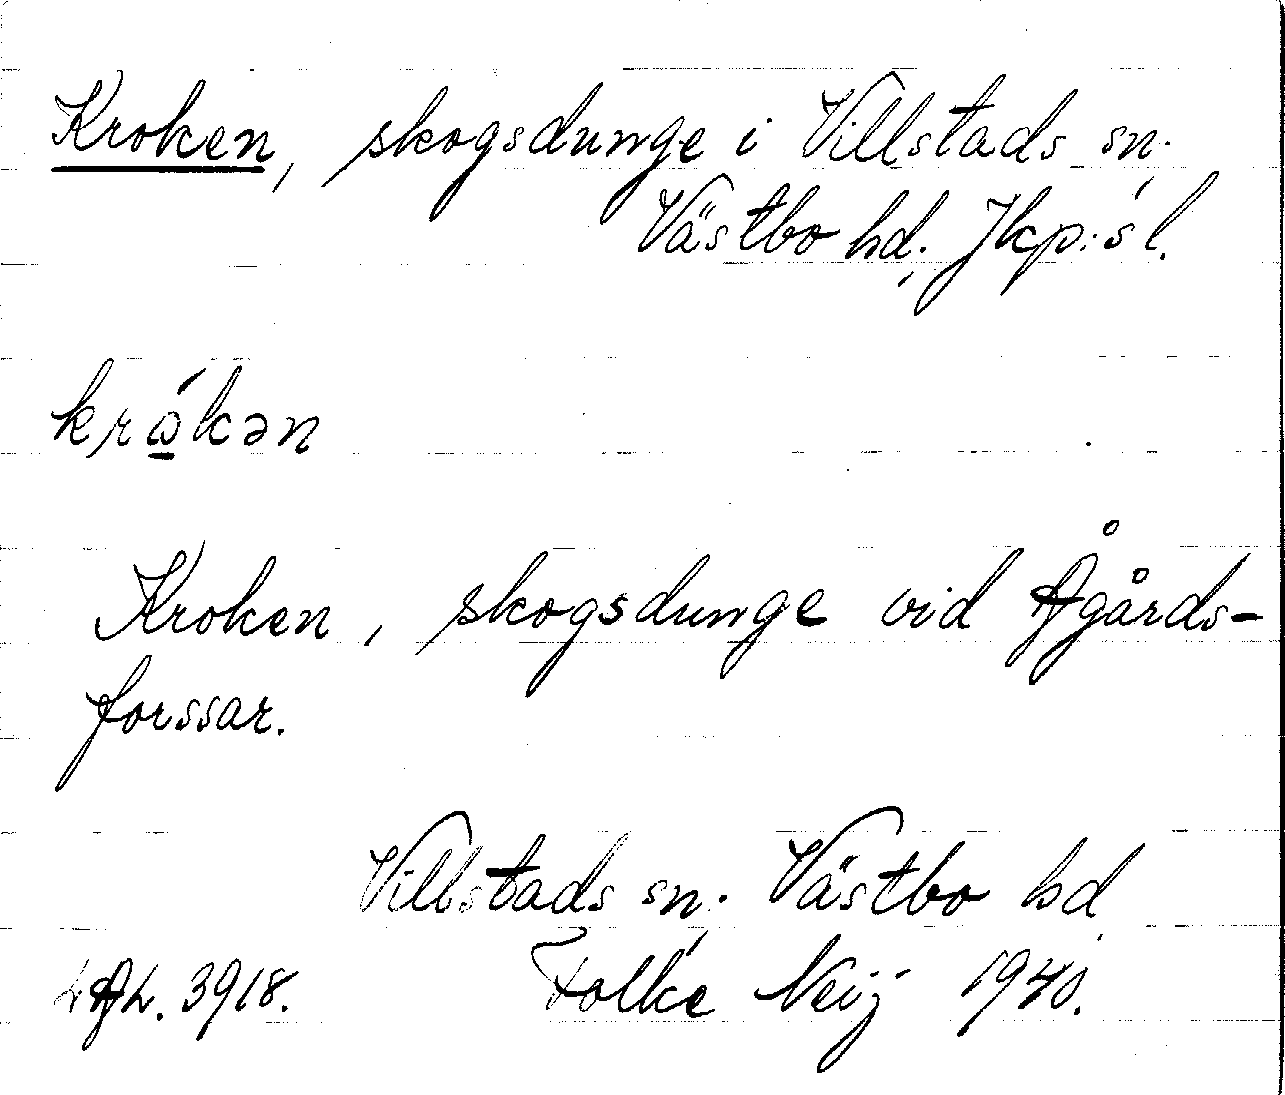 Kroken, skogsdunge i Villstads sn.
Västbo hd. Jkp:s l.
krώ̲kən
Kroken, skogsdunge vid Ågårds-
forssar.
Villstads sn. Västbo hd
LAL. 3918. Folke Neij 1940.